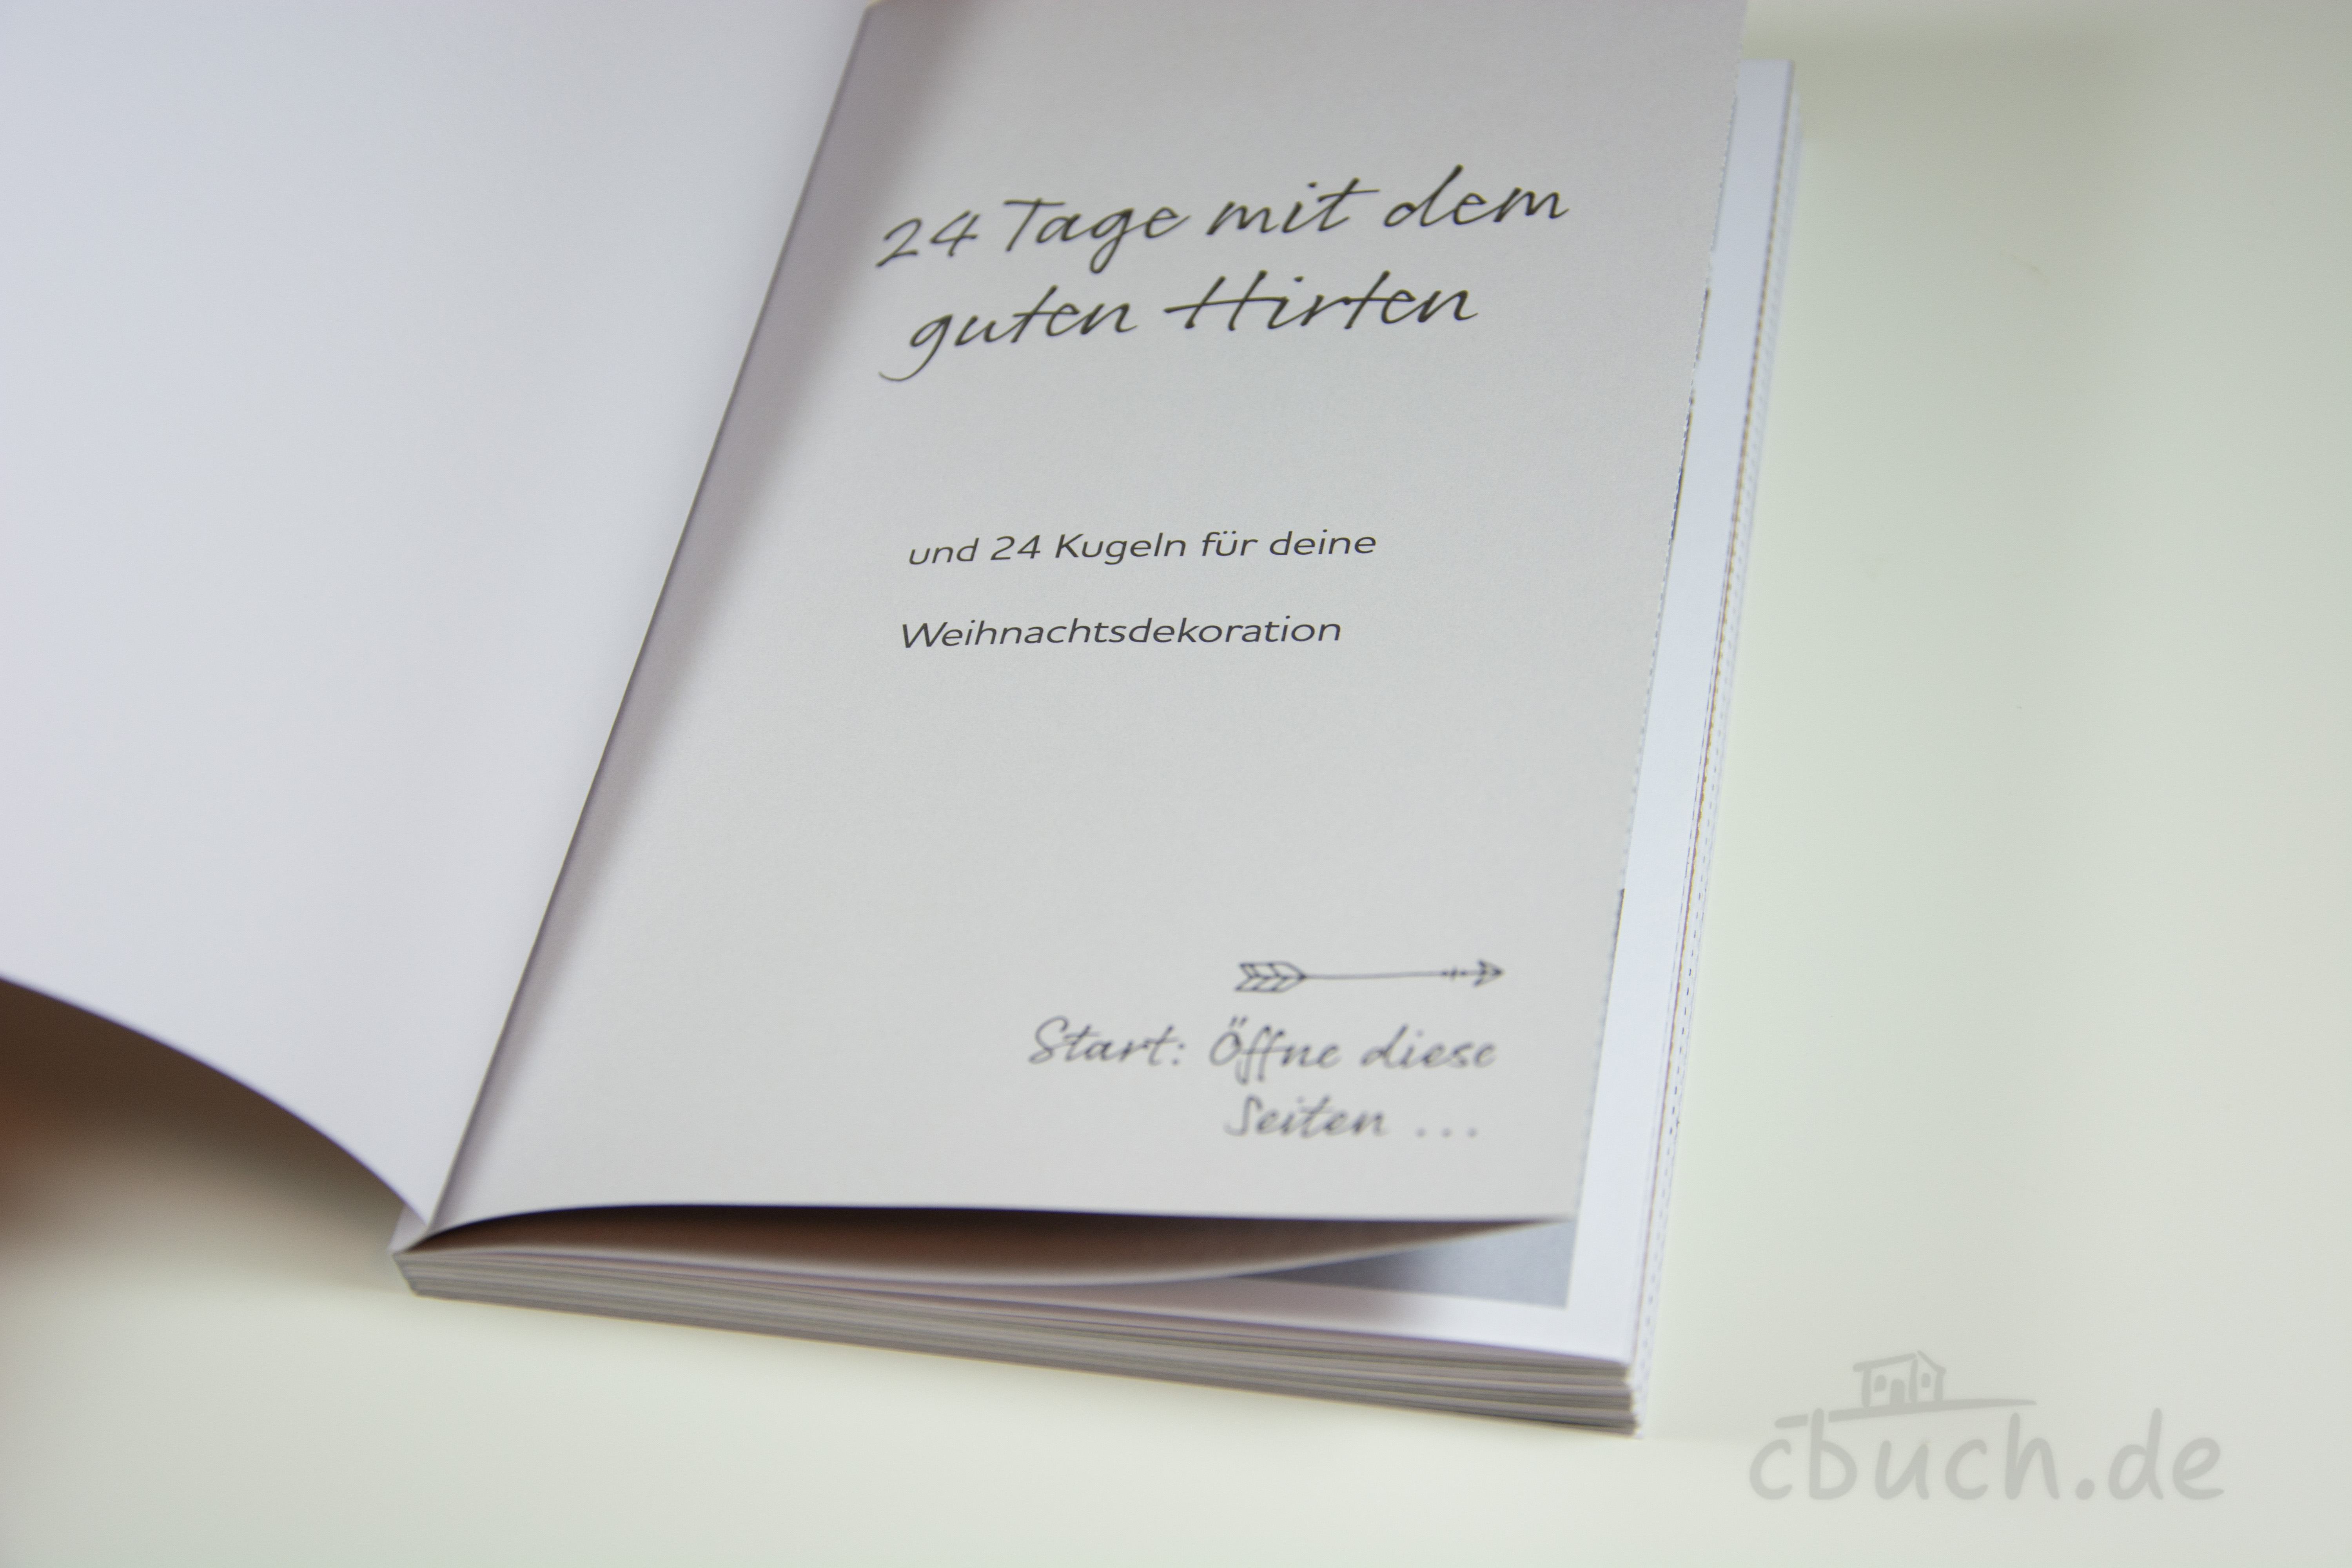 24 Tage mit dem
guten Hirten
und 24 Kugeln für deine
Weihnachtsdekoration
Start: Öffne diese
Seiten ...
cbuch.de